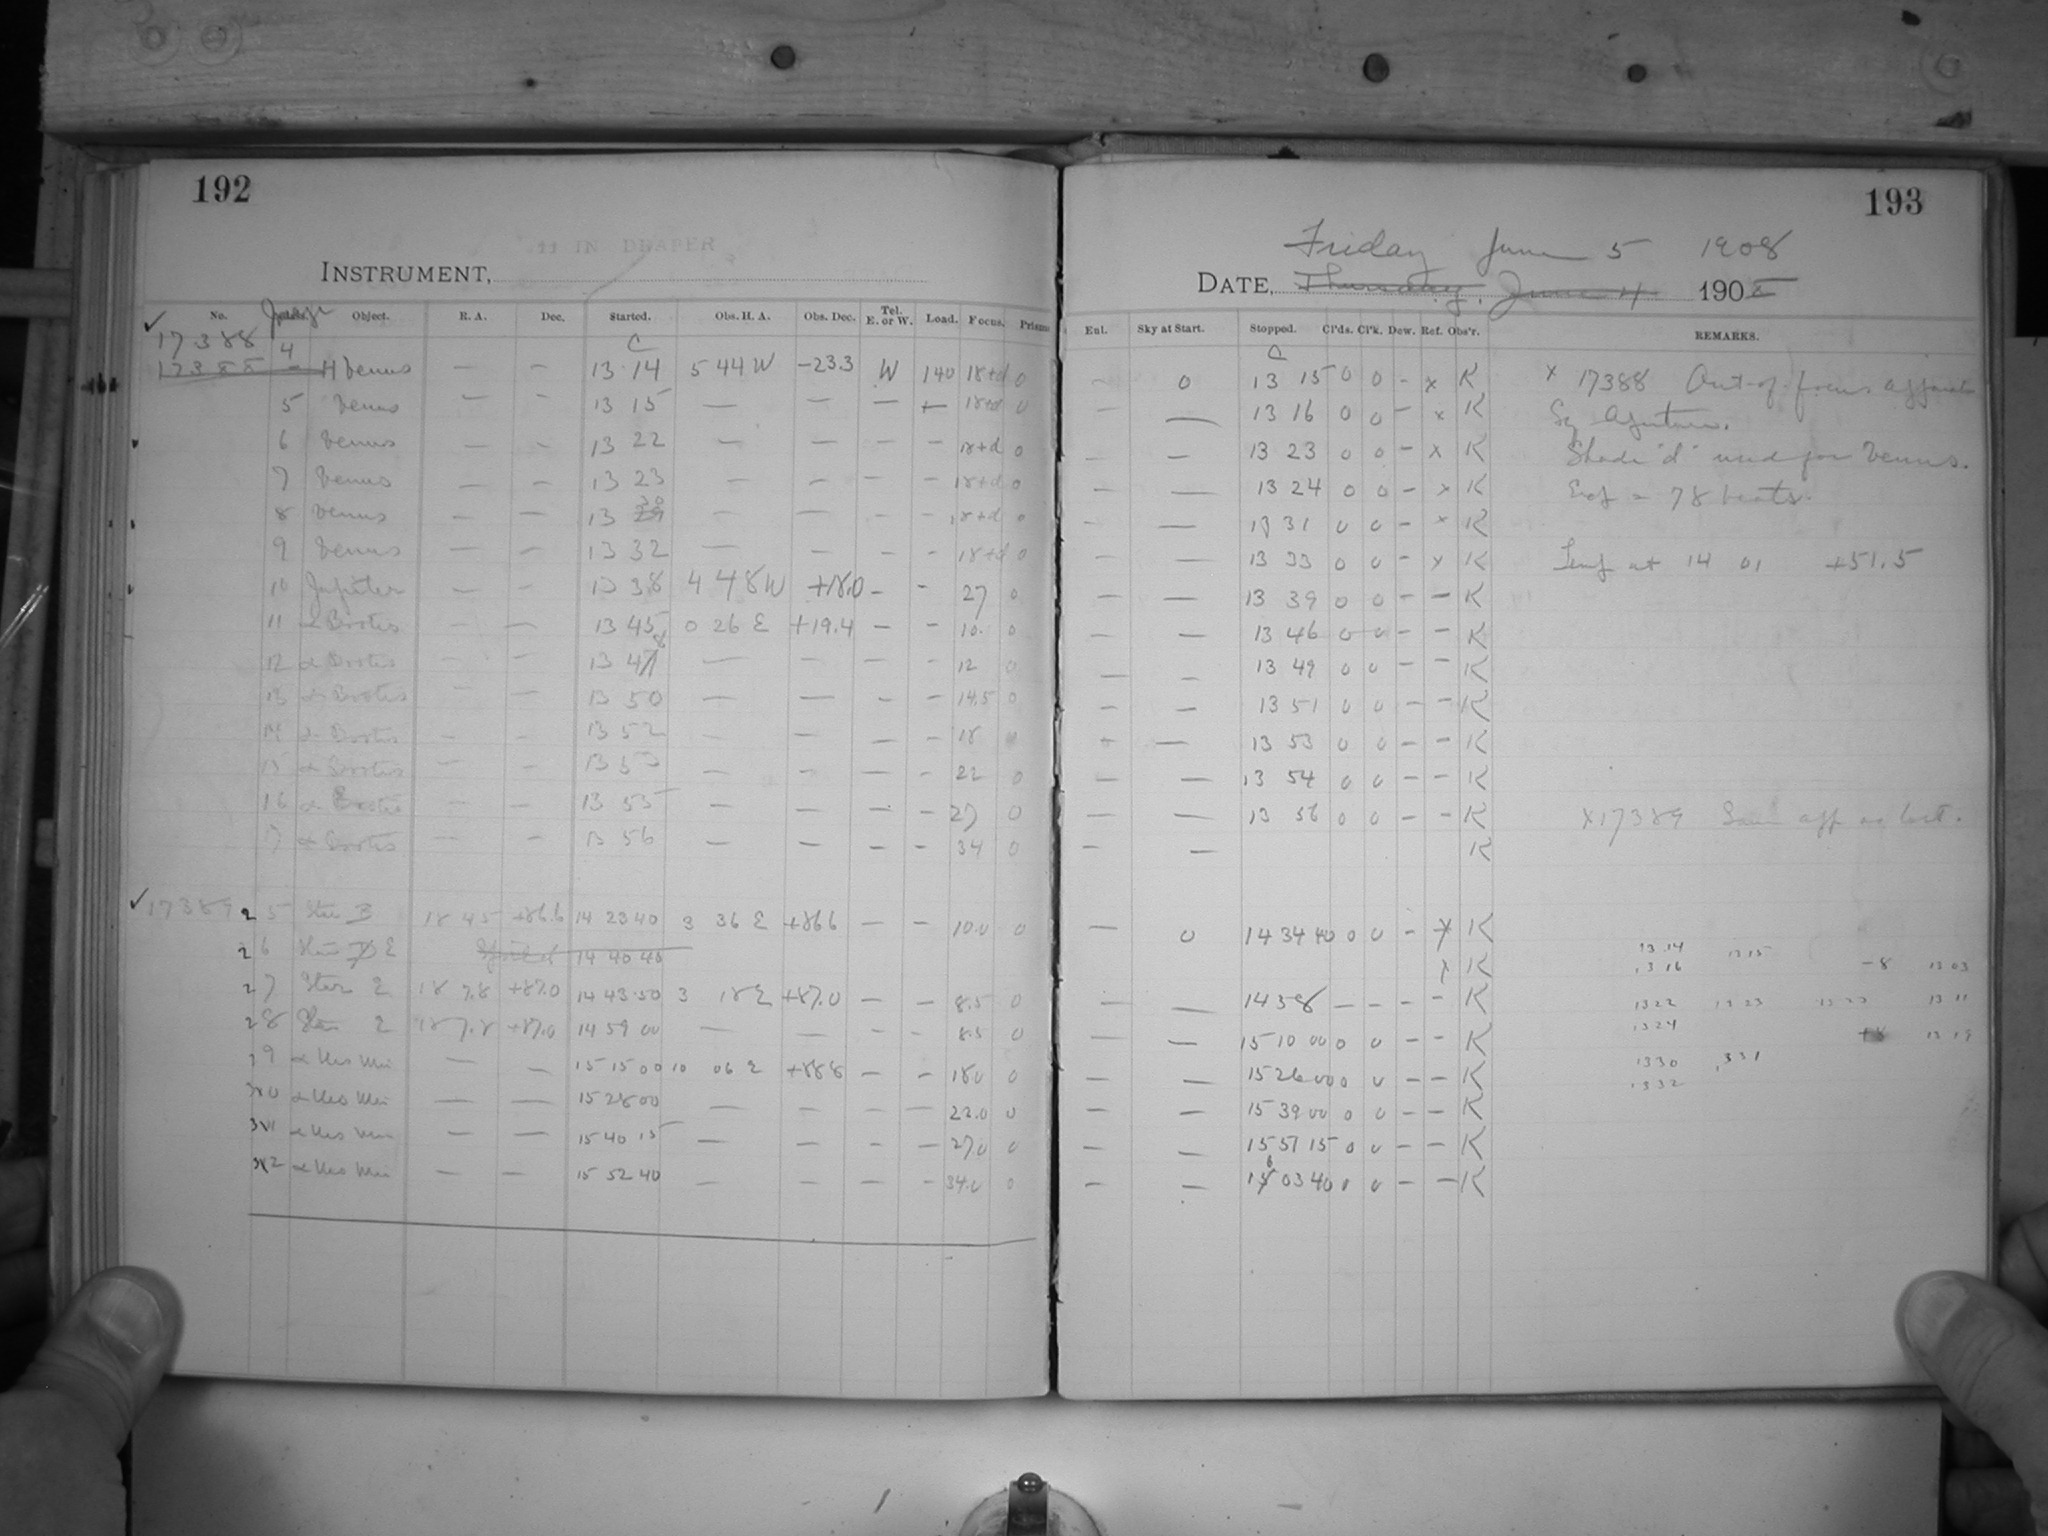 192
11 IN DRAPER
INSTRUMENT,
No. Object. R. A. Dec. Started. Obs. H. A. Obs. Dec. Tel. E. or W. Load. Focus. Prisms
17388 4 C
17388 - H Venus — — 13 14 5 44 W -23.3 W 140 18+d 0
5 Venus — — 13 15 — — — — 18+d 0
6 Venus — — 13 22 — — — — 18+d 0
7 Venus — — 13 23 — — — — 18+d 0
8 Venus — — 13 30 — — — — 18+d 0
9 Venus — — 13 32 — — — — 18+d 0
10 Jupiter — — 13 38 4 48 W +18.0 - - 27 0
11 α Bootis — — 13 45 0 26 E +19.4 — - 10. 0
12 α Bootis — — 13 48 — — — — 12 0
13 α Bootis — — 13 50 — — — — 14.5 0
14 α Bootis — — 13 52 — — — — 18
15 α Bootis — — 13 53 — — — — 22 0
16 α Bootis — — 13 55 — — — — 27 0
17 α Bootis — — 13 56 — — — — 34 0
17389 25 Star B 18 45 +86.6 14 23 40 3 36 E +86.6 — — 10.0 0
26 Star E 14 40 40
27 Star E 18 7.8 +87.0 14 43 50 3 18 E +87.0 — — 8.5 0
28 Star E 18 7.8 +87.0 14 59 00 — — — — 8.5 0
29 α Urs Min — — 15 15 00 10 06 E +88.8 — — 18.0 0
30 α Urs Min — — 15 28 00 — — — — 22.0 0
31 α Urs Min — — 15 40 15 — — — — 27.0 0
32 α Urs Min — — 15 52 40 — — — — 34.0 0
193
Friday June 5 1908
DATE, Thursday, June 4 1908
Ent. Sky at Start. Stopped. Cl'ds. Cl'k. Dew. Ref. Obs'r. REMARKS.
C
— 0 13 15 0 0 - x K x 17388 Out-of-focus
— — 13 16 0 0 - x K Sq Aperture.
— — 13 23 0 0 - x K Shade "d" used for Venus.
— — 13 24 0 0 - x K = 78 beats.
— — 13 31 0 0 - x K
— — 13 33 0 0 - x K Temp at 14 01 +51.5
— — 13 39 0 0 - - K
— — 13 46 0 0 - - K
— — 13 49 0 0 - - K
— — 13 51 0 0 - - K
— — 13 53 0 0 - - K
— — 13 54 0 0 - - K
— — 13 56 0 0 - - K x17389 Same app as last.
— — K
— 0 14 34 40 0 0 - x K
x K
— — 14 58 — — — - K
— — 15 10 00 0 0 - - K
— — 15 26 00 0 0 - - K
— — 15 39 00 0 0 - - K
— — 15 51 15 0 0 - - K
— — 16 03 40 0 0 - - K
13 14 13 15
13 16 -8 13 03
13 22 13 23 13 11
13 24 13 19
13 30 1331
13 32